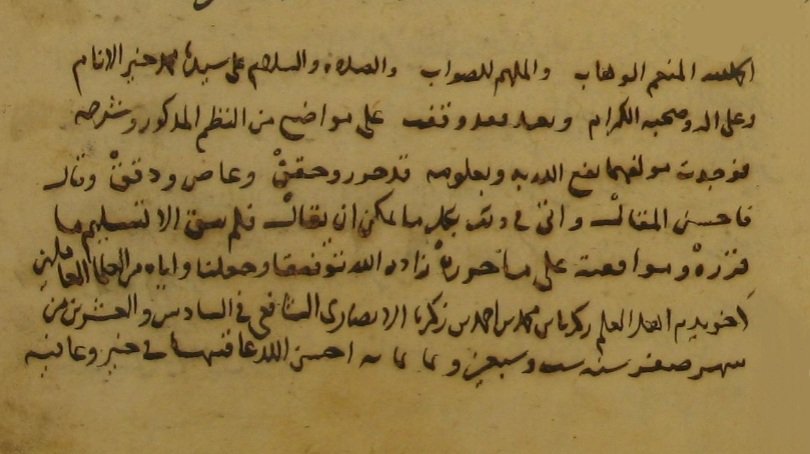 الحمد لله المنعم الوهاب والملهم للصواب والصلاه والسلام على سيدنا محمد خير الانام
وعلى اله وصحبه الكرام وبعد فقد وقفت على مواضع من النظم المذكور وشرحه
فوجدت مولفهما نفع الله به وبعلومه قد حرر وحقق وغاص ودقق وقال
فاحسن المقال واتى في ذلك بكل ما يمكن ان يقال فلم يبق الا التسليم لما
قرره وموافقته على ما حرره زاده الله توفيقا وجعلنا واياه من العلما العاملين
العلم زكريا بن محمد بن احمد بن زكريا الانصاري الشافعي في السادس والعشرين من
شهر صفر سنه ست وسبعين وثمانمايه احسن الله عاقبتها في خير وعافيه